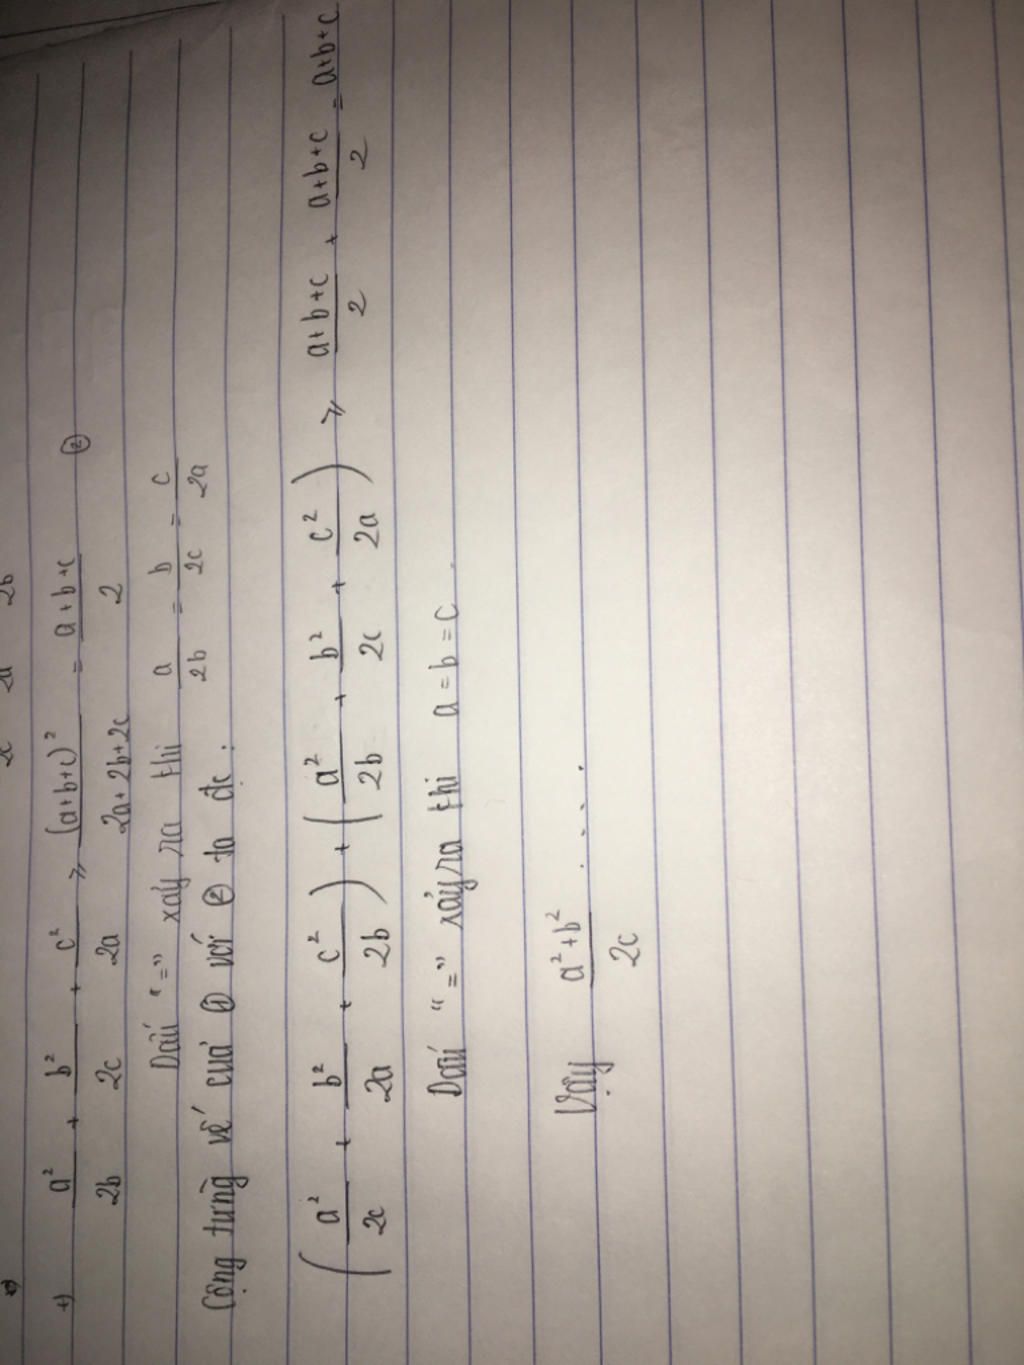 2c 2a 2b
+) a²/2b + b²/2c + c²/2a ⩾ (a+b+c)²/2a+2b+2c = a+b+c/2 ②
Dấu "=" xảy ra thì a/2b = b/2c = c/2a
Cộng từng vế của ① với ② ta đc :
(a²/2c + b²/2a + c²/2b) + (a²/2b + b²/2c + c²/2a) ⩾ a+b+c/2 + a+b+c/2 = a+b+c
Dấu "=" xảy ra thì a = b = c .
Vậy a²+b²/2c .....